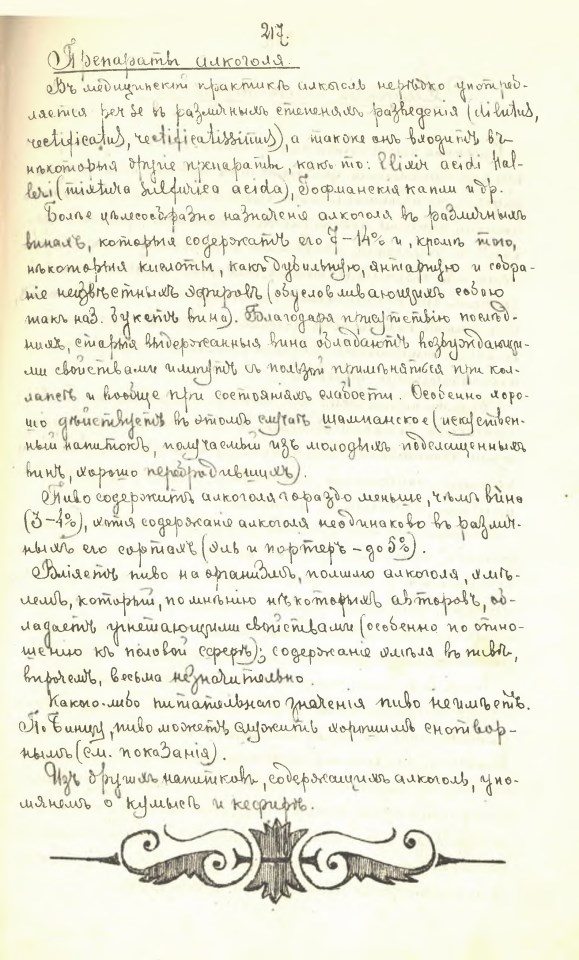 217.
Препараты алкоголя.
Въ медицинской практикѣ алкоголь нерѣдко употреб-
ляется per se въ различныхъ степеняхъ разведенія (dilutus,
rectificatus, rectificatissimus), а также онъ входитъ въ
нѣкоторыя другіе препараты, какъ то: Elixir acidi Hal-
leri (mixtura sulfurica acida), Гофманскія капли и др.
Болѣе цѣлесообразно назначеніе алкоголя въ различныхъ
винахъ, которыя содержатъ его 7–14% и, кромѣ того,
нѣкоторыя кислоты, какъ дубильную, янтарную и собра-
ніе неизвѣстныхъ эфировъ (обусловливающихъ собою
такъ наз. букетъ вина). Благодаря присутствію послѣд-
нихъ, старыя выдержанныя вина обладаютъ возбуждающи-
ми свойствами и могутъ съ пользой примѣняться при кол-
лапсѣ и вообще при состояніяхъ слабости. Особенно хоро-
шо дѣйствуетъ въ этомъ случаѣ шампанское (искуствен-
ный напитокъ, получаемый изъ молодыхъ подслащенныхъ
винъ, хорошо перебродившихъ).
Пиво содержитъ алкоголя гораздо меньше, чѣмъ вино
(3–4%), хотя содержаніе алкоголя неодинаково въ различ-
ныхъ его сортахъ (эль и портеръ – до 5%).
Вліяетъ пиво на организмъ, помимо алкоголя, хмѣ-
лемъ, который, по мнѣнію нѣкоторыхъ авторовъ, об-
ладаетъ угнетающими свойствами (особенно по отно-
шенію къ половой сферѣ); содержаніе хмѣля въ пивѣ,
впрочемъ, весьма незначительно.
Какого-либо питательнаго значенія пиво не имѣетъ.
По Бинцу, пиво можетъ служить хорошимъ снотвор-
нымъ (см. показанія).
Изъ другихъ напитковъ, содержащихъ алкоголь, упо-
мянемъ о кумысѣ и кефирѣ.